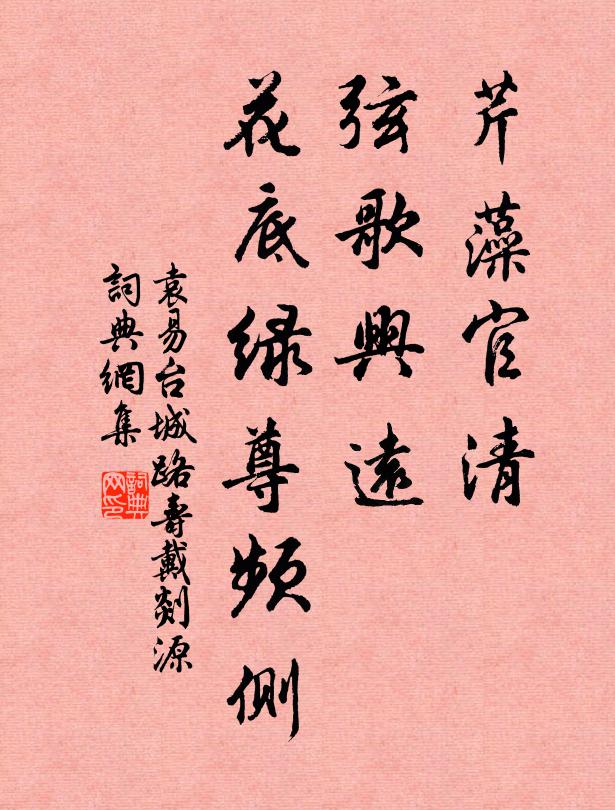 芹藻官清
弦歌興遠
花底绿尊頻側
袁易台城路壽戴剡源
詞典網集
詞典網印